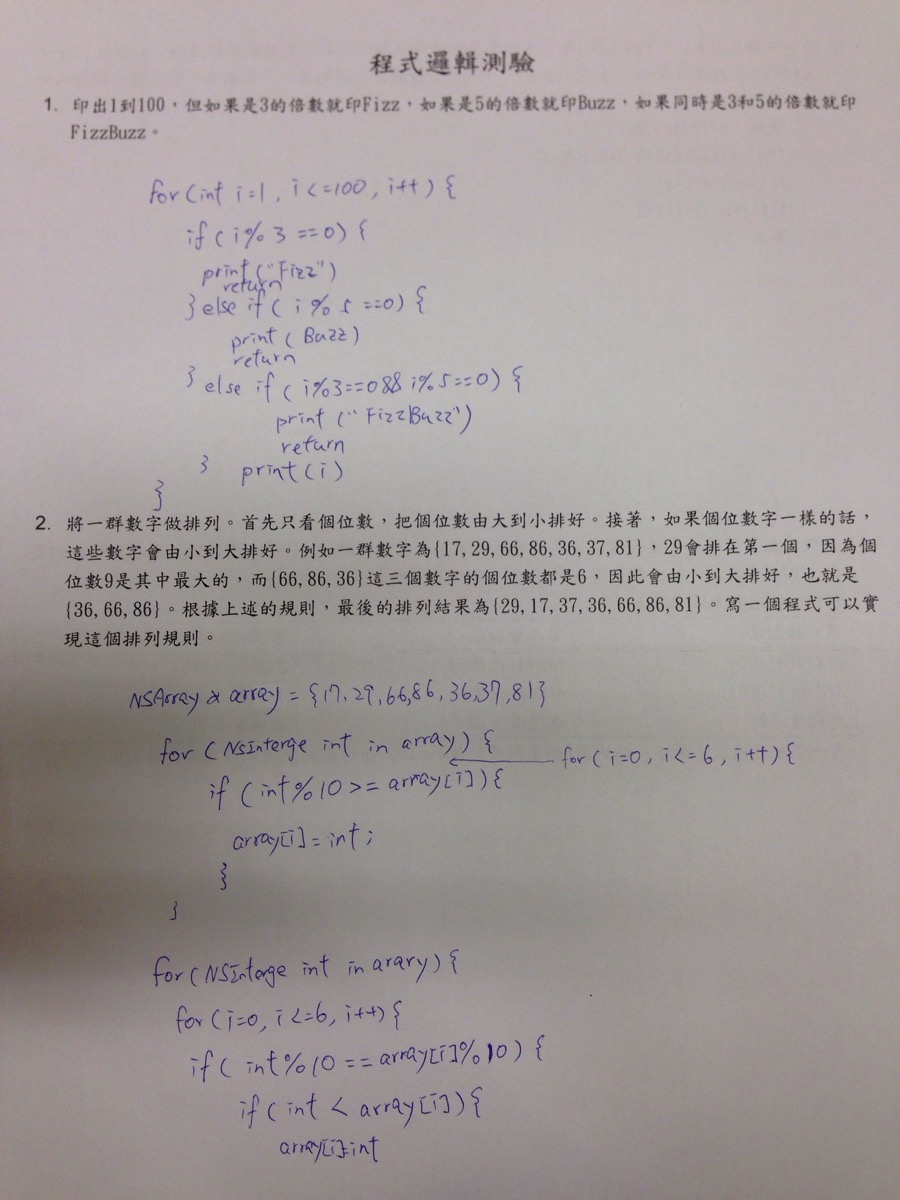 程式邏輯測驗
1. 印出1到100，但如果是3的倍數就印Fizz，如果是5的倍數就印Buzz，如果同時是3和5的倍數就印
FizzBuzz。
for (int i=1, i<=100, i++) {
if (i%3 ==0) {
print("Fizz")
return
} else if ( i % 5 ==0) {
print ( Buzz)
return
} else if ( i%3==0&& i%5==0) {
print ("FizzBuzz")
return
} print(i)
}
2. 將一群數字做排列。首先只看個位數，把個位數由大到小排好。接著，如果個位數字一樣的話，
這些數字會由小到大排好。例如一群數字為{17, 29, 66, 86, 36, 37, 81}，29會排在第一個，因為個
位數9是其中最大的，而{66, 86, 36}這三個數字的個位數都是6，因此會由小到大排好，也就是
{36, 66, 86}。根據上述的規則，最後的排列結果為{29, 17, 37, 36, 66, 86, 81}。寫一個程式可以實
現這個排列規則。
NSArray * array = {17, 29, 66, 86, 36, 37, 81}
for ( NSInterge int in array) { for ( i=0, i<=6, i++) {
if ( int%10 >= array[i]) {
array[i] = int ;
}
}
for ( NSInterge int in arary) {
for ( i=0, i<=6, i++) {
if ( int%10 == array[i]%10) {
if ( int < array[i]) {
array[i]=int